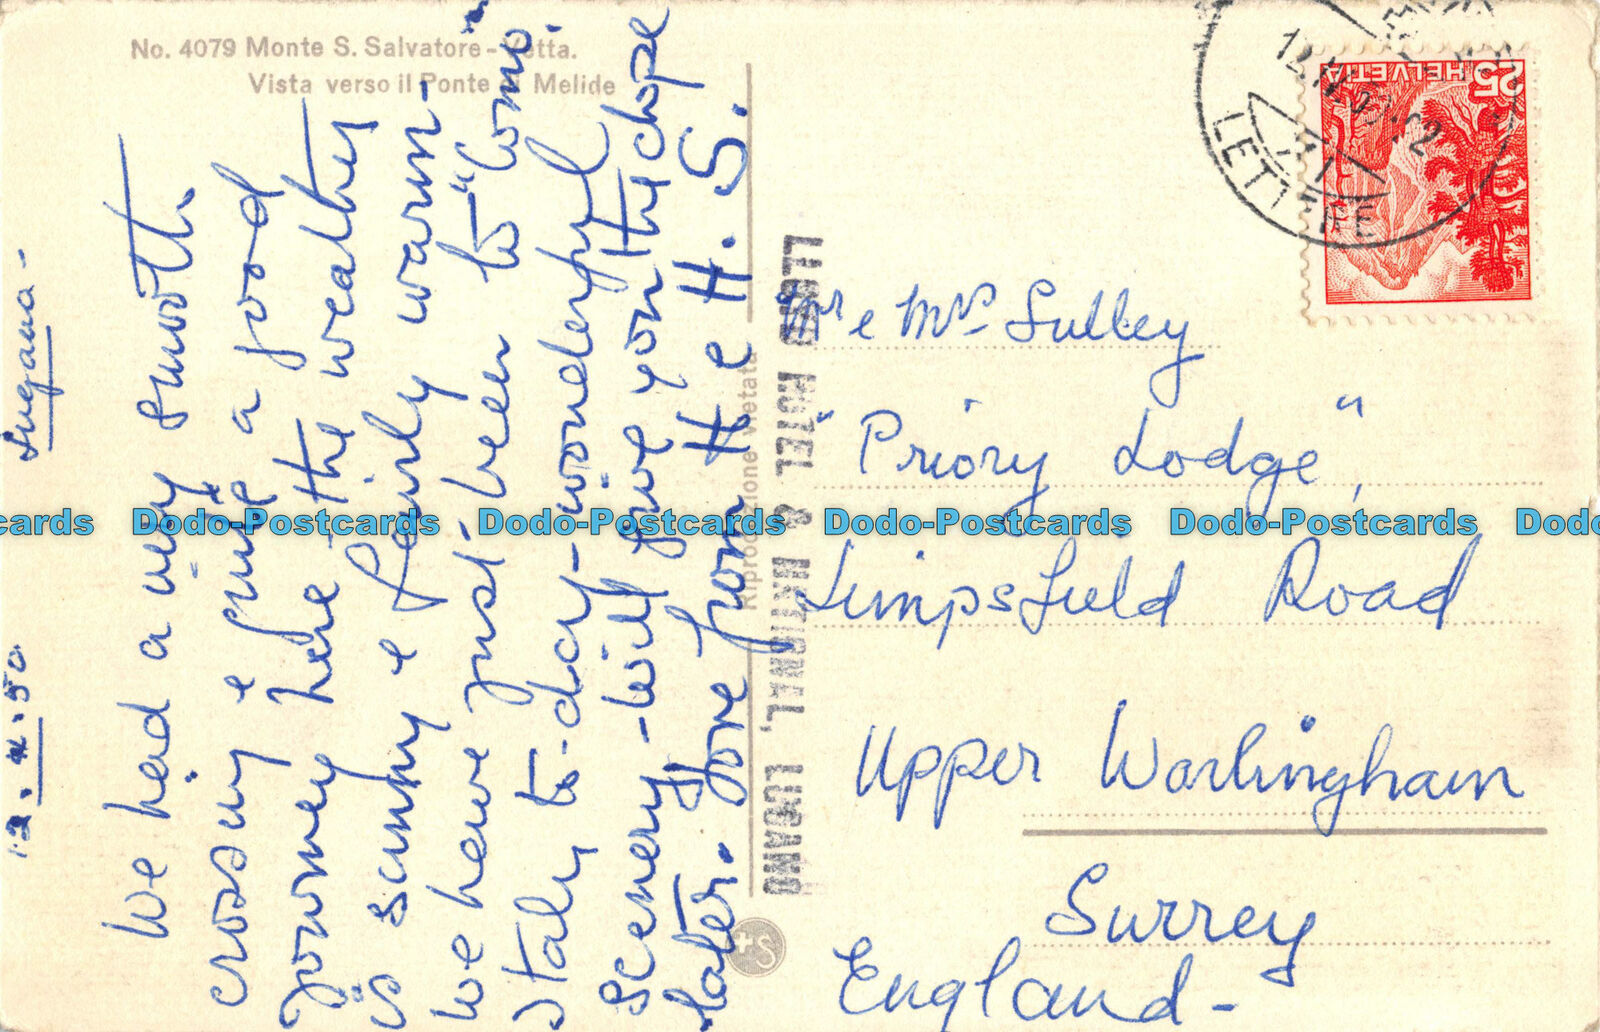 No. 4079 Monte S. Salvatore - Vetta.
Vista verso il Ponte di Melide
Lugano -
12. 4. 50
We had a very smooth
crossing & quite a good
journey here - the weather
is sunny & fairly warm -
we have just been to "Como"
Italy to-day - wonderful
scenery - will give you the dope
later. Love from H & H. S.
Riproduzione vietata
+S
LLOYD HOTEL & NATIONAL, LUGANO
HELVETIA
25
12.IV.50.22
LETTRE
Mr & Mrs Sulley
"Priory Lodge",
Limpsfield Road
Upper Warlingham
Surrey
England -
Dodo-Postcards Dodo-Postcards Dodo-Postcards Dodo-Postcards